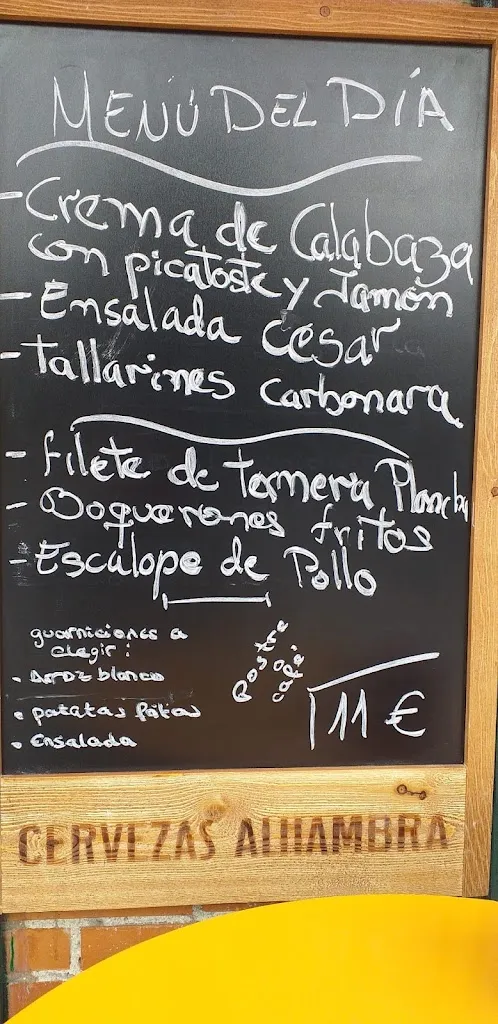 MENÚ DEL DÍA
- Crema de Calabaza
con picatoste y Jamón
- Ensalada César
- Tallarines Carbonara
- filete de ternera Plancha
- Boquerones fritos
- Escalope de Pollo
guarniciones a
elegir:
• Arroz blanco
• patatas fritas
• Ensalada
Postre
o
café
11 €
CERVEZAS ALHAMBRA